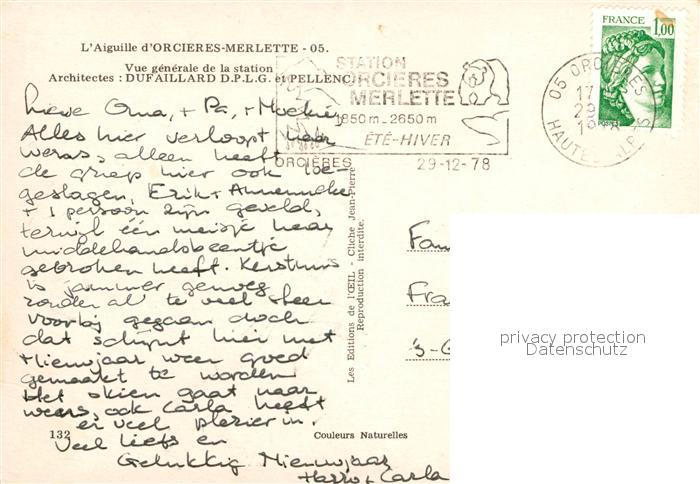 L'Aiguille d'ORCIERES-MERLETTE - 05.
Vue générale de la station
Architectes : DUFAILLARD D.P.L.G. et PELLENC
STATION
ORCIERES
MERLETTE
1850m_2650m
ÉTÉ-HIVER
ORCIÈRES
29-12-78
05 ORCIERES
17
29
HAUTES ALPES
FRANCE
1,00
Lieve Oma, + Pa, + Moekie,
Alles hier verloopt naar
wens, alleen heeft
de griep hier ook toe-
geslagen, Erik + Annemieke
+ 1 persoon zijn geveld,
terwijl één meisje haar
middenhandsbeentje
gebroken heeft. Kerstmis
is jammer genoeg
zonder al te veel sfeer
voorbij gegaan doch
dat schijnt hier met
Nieuwjaar weer goed
gemaakt te worden
Het skien gaat naar
wens, ook Carla heeft
er veel plezier in.
Veel liefs en
Gelukkig Nieuwjaar
Harry + Carla
132
Couleurs Naturelles
Les Editions de l'ŒIL - Cliche Jean-Pierre
Reproduction interdite.
Fam
Fra
's-G
privacy protection
Datenschutz